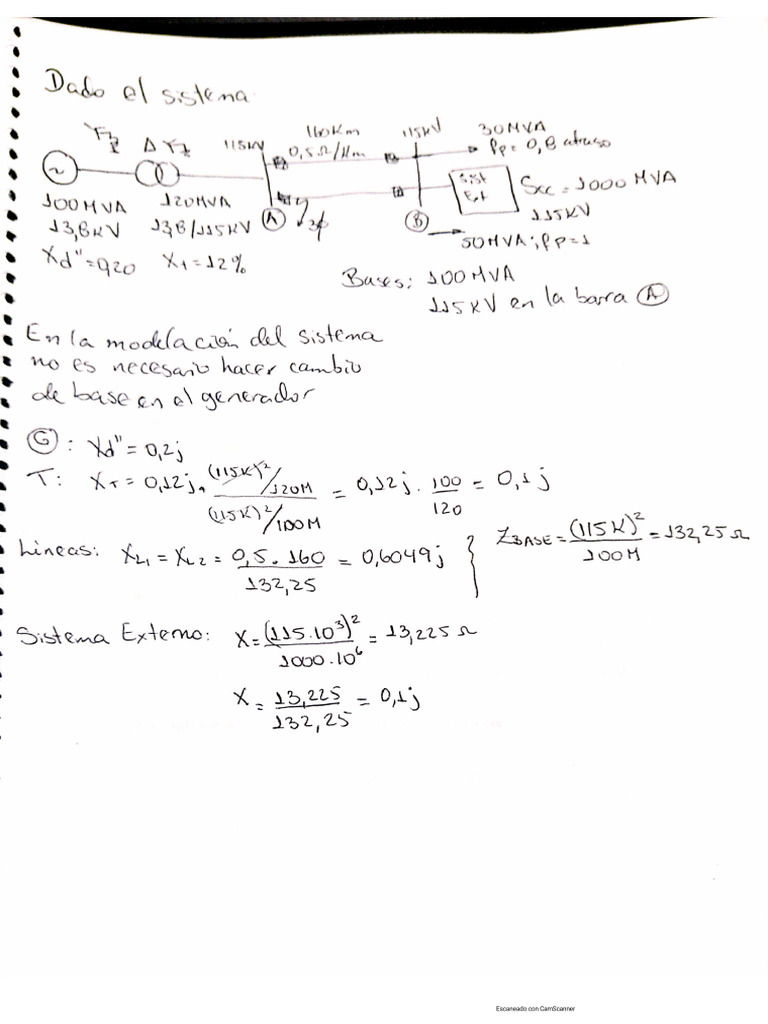 Dado el sistema
ΔY
115KV
160Km
0,5Ω/Km
115KV
30MVA
fp = 0,8 atraso
100MVA
13,8KV
Xd"=0,20
120MVA
13,8/115KV
XT=12%
A
3ϕ
B
Sist
Ext
Scc = 1000 MVA
115KV
50MVA; fp=1
Bases: 100MVA
115KV en la barra A
En la modelación del sistema
no es necesario hacer cambio
de base en el generador
G: Xd" = 0,2j
T: XT = 0,12j. (115K)²/120M / (115K)²/100M = 0,12j. 100/120 = 0,1j
Lineas: XL1 = XL2 = 0,5.160/132,25 = 0,6049j } ZBASE = (115K)²/100M = 132,25Ω
Sistema Externo: X = (115.10³)²/1000.10⁶ = 13,225Ω
X = 13,225/132,25 = 0,1j
Escaneado con CamScanner